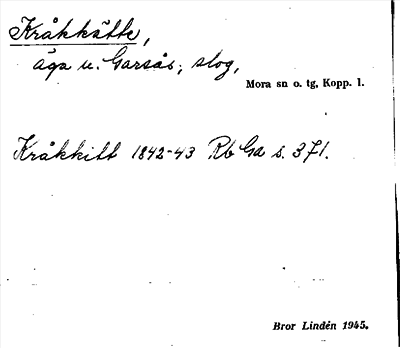 Kråkkätte,
äga u. Garsås, slog,
Mora sn o. tg, Kopp. l.
Kråkkitt 1842-43 Rb Ga s. 371.
Bror Lindén 1945.